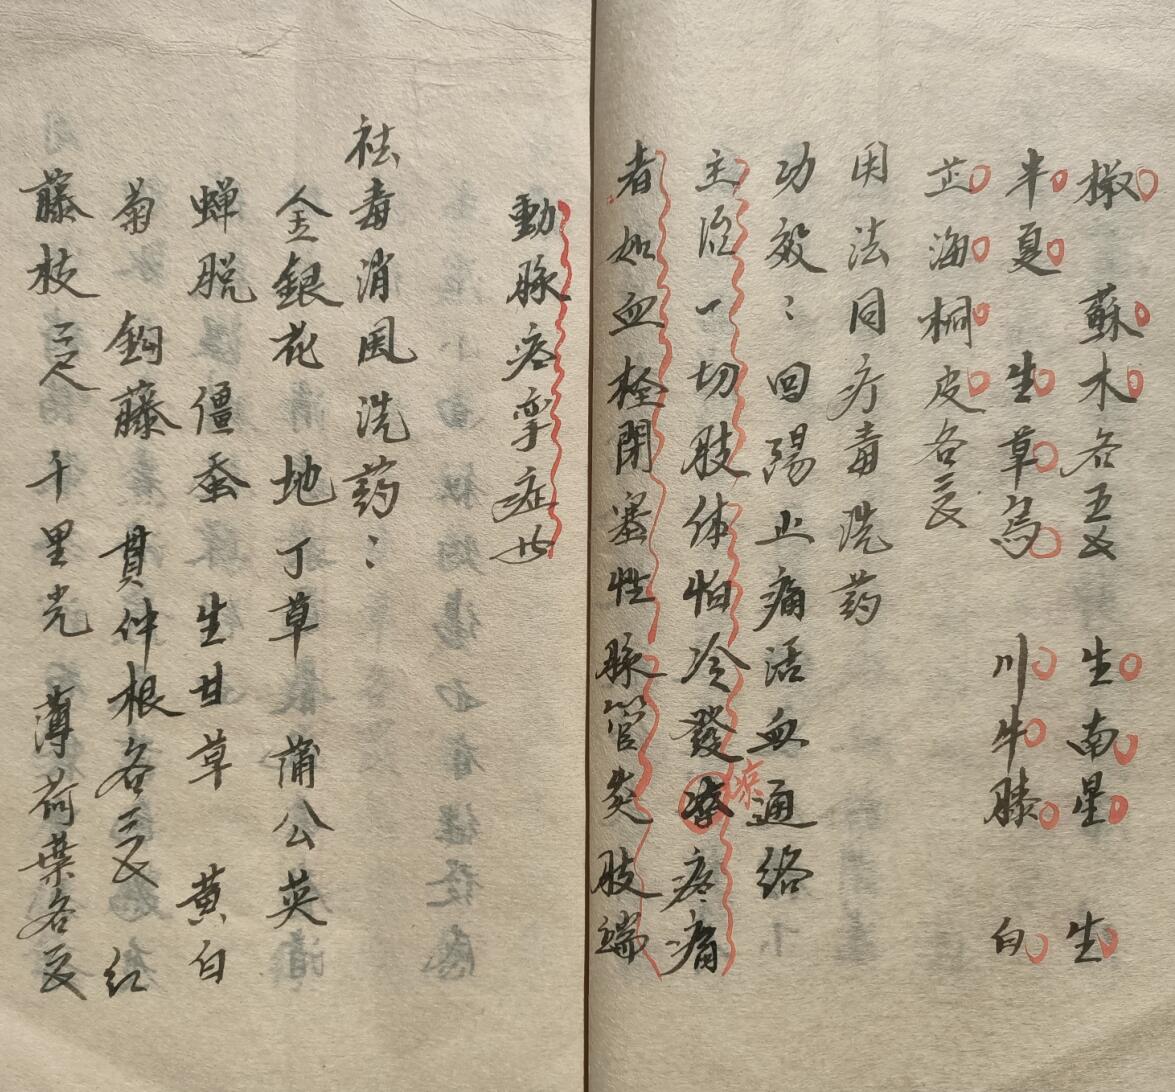 橄 蘇木各五文 生南星 生
半夏 生草烏 川牛膝 白
芷海桐皮各三文
用法同疔毒洗药
功效：回陽止痛活血通络
主治一切肢体怕冷發凉疼痛
凉
者如血栓閉塞性脉管炎肢端
動脉痉挛症せ
祛毒消风洗药：
金銀花 地丁草 蒲公英
蝉脱 僵蚕 生甘草 黄白
菊 鈎藤 貫仲根各三文 红
藤枝三尺 千里光 薄荷葉各